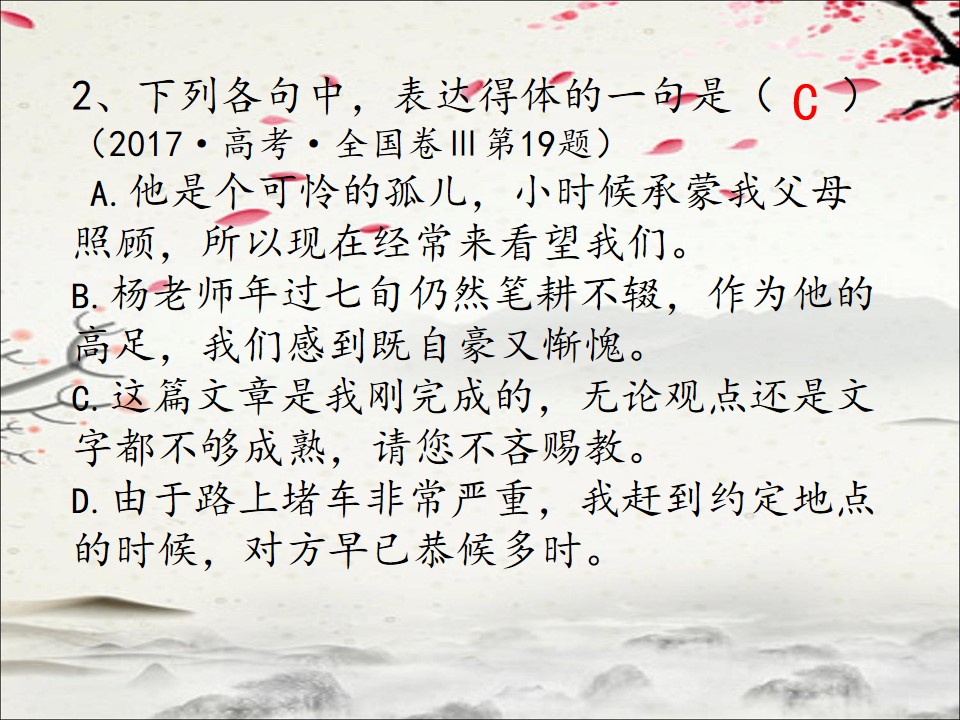 2、下列各句中，表达得体的一句是（ C ）
（2017·高考·全国卷Ⅲ第19题）
A.他是个可怜的孤儿，小时候承蒙我父母
照顾，所以现在经常来看望我们。
B.杨老师年过七旬仍然笔耕不辍，作为他的
高足，我们感到既自豪又惭愧。
C.这篇文章是我刚完成的，无论观点还是文
字都不够成熟，请您不吝赐教。
D.由于路上堵车非常严重，我赶到约定地点
的时候，对方早已恭候多时。